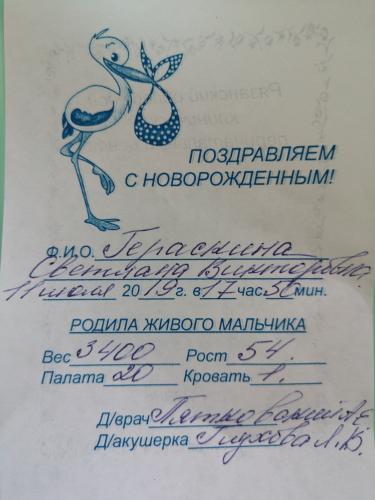 ПОЗДРАВЛЯЕМ
С НОВОРОЖДЕННЫМ!
Ф.И.О. Гераскина
Светлана Викторовна
11 июля 2019 г. в 17 час 50 мин.
РОДИЛА ЖИВОГО МАЛЬЧИКА
Вес 3400 Рост 54.
Палата 20 Кровать 1.
Д/врач А.Е.
Д/акушерка Глухова Л.В.